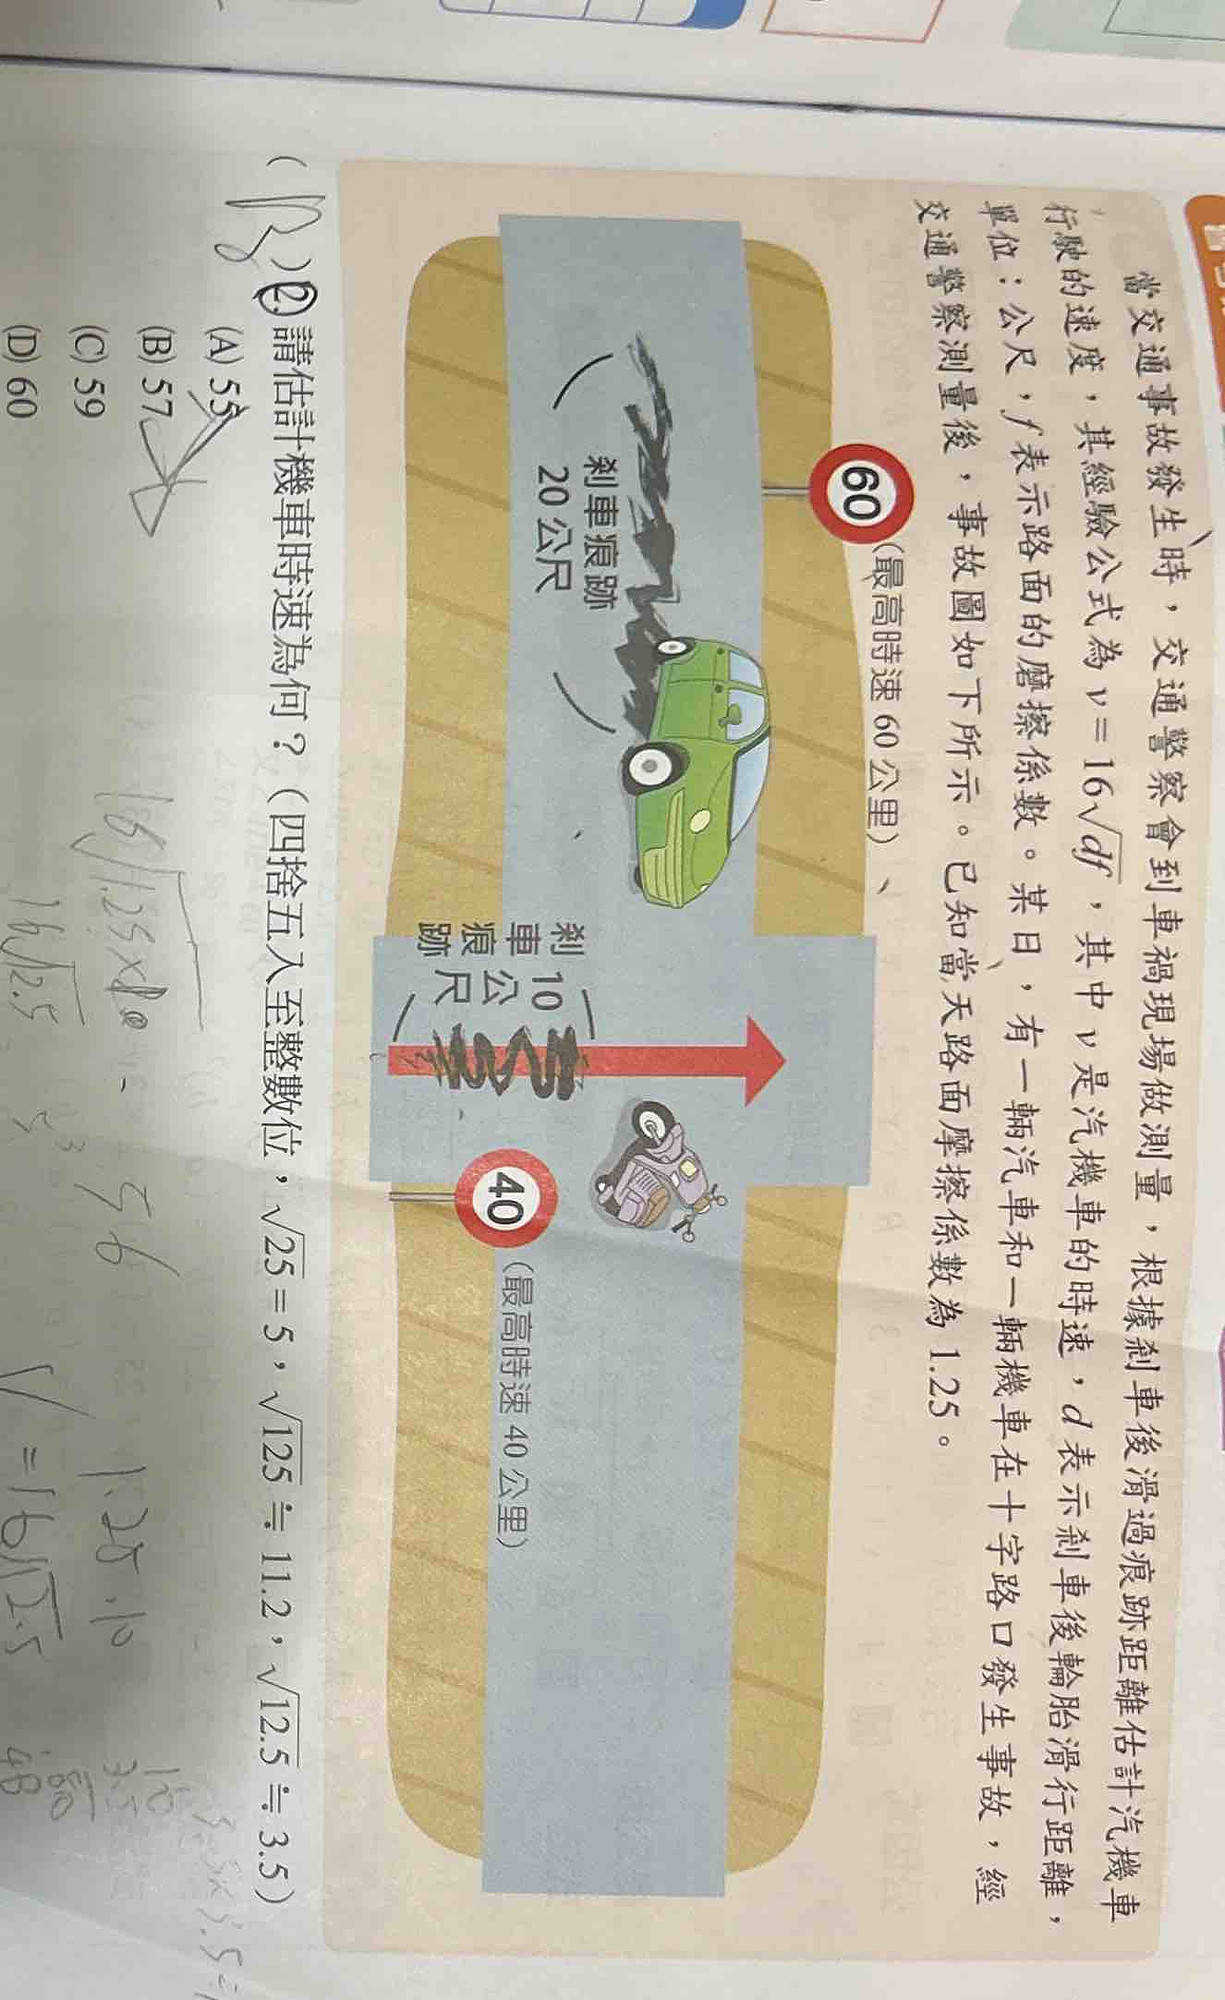 當交通事故發生時，交通警察會到車禍現場做測量，根據剎車後滑過痕跡距離估計汽機車
行駛的速度，其經驗公式為 v＝16√df，其中 v 是汽機車的時速，d 表示剎車後輪胎滑行距離，
單位：公尺，f 表示路面的磨擦係數。某日，有一輛汽車和一輛機車在十字路口發生事故，經
交通警察測量後，事故圖如下所示。已知當天路面摩擦係數為 1.25。
60
(最高時速 60 公里)
剎車痕跡
20 公尺
剎車痕跡
10公尺
40
(最高時速 40 公里)
( B ) 2. 請估計機車時速為何？（四捨五入至整數位，√25＝5，√125≒11.2，√12.5≒3.5）
(A) 55
(B) 57
(C) 59
(D) 60
16√1.25×10 = 56
1.25 · 10
16√12.5
√ = 16√12.5